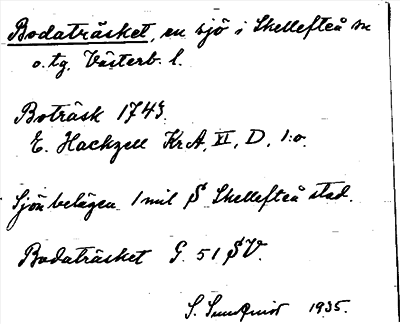 Bodaträsket, en sjö i Skellefteå sn
o. tg. Västerb. l.
Boträsk 1743.
E. Hackzell Kr A, VI, D, 1:o.
Sjön belägen 1 mil S Skellefteå stad.
Bodaträsket G. 51 SV.
S. Sundqvist 1935.